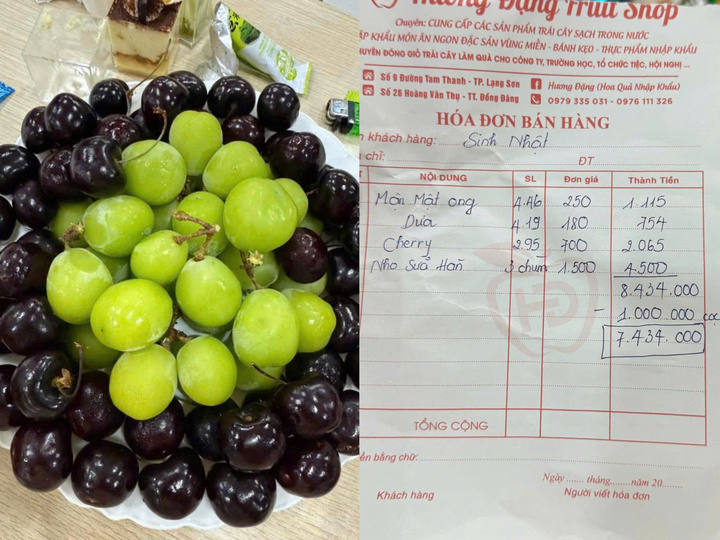 Hương Đặng Fruit Shop
Chuyên: CUNG CẤP CÁC SẢN PHẨM TRÁI CÂY SẠCH TRONG NƯỚC
ẬP KHẨU MÓN ĂN NGON ĐẶC SẢN VÙNG MIỀN - BÁNH KẸO - THỰC PHẨM NHẬP KHẨU
HUYÊN ĐÓNG GIỎ TRÁI CÂY LÀM QUÀ CHO CÔNG TY, TRƯỜNG HỌC, TỔ CHỨC TIỆC, HỘI NGHỊ ...
Số 9 Đường Tam Thanh - TP. Lạng Sơn Hương Đặng (Hoa Quả Nhập Khẩu)
Số 26 Hoàng Văn Thụ - TT. Đồng Đăng 0979 335 031 - 0976 111 326
HÓA ĐƠN BÁN HÀNG
n khách hàng: Sinh Nhật
chỉ: ĐT
NỘI DUNG SL Đơn giá Thành Tiền
Mận Mật ong 4.46 250 1.115
Dưa 4.19 180 754
Cherry 2.95 700 2.065
Nho Sữa Hàn 3 chùm 1.500 4.500
8.434.000
- 1.000.000 cọc
7.434.000
TỔNG CỘNG
iền bằng chữ:
Ngày ....... tháng ....... năm 20 .......
Khách hàng Người viết hóa đơn